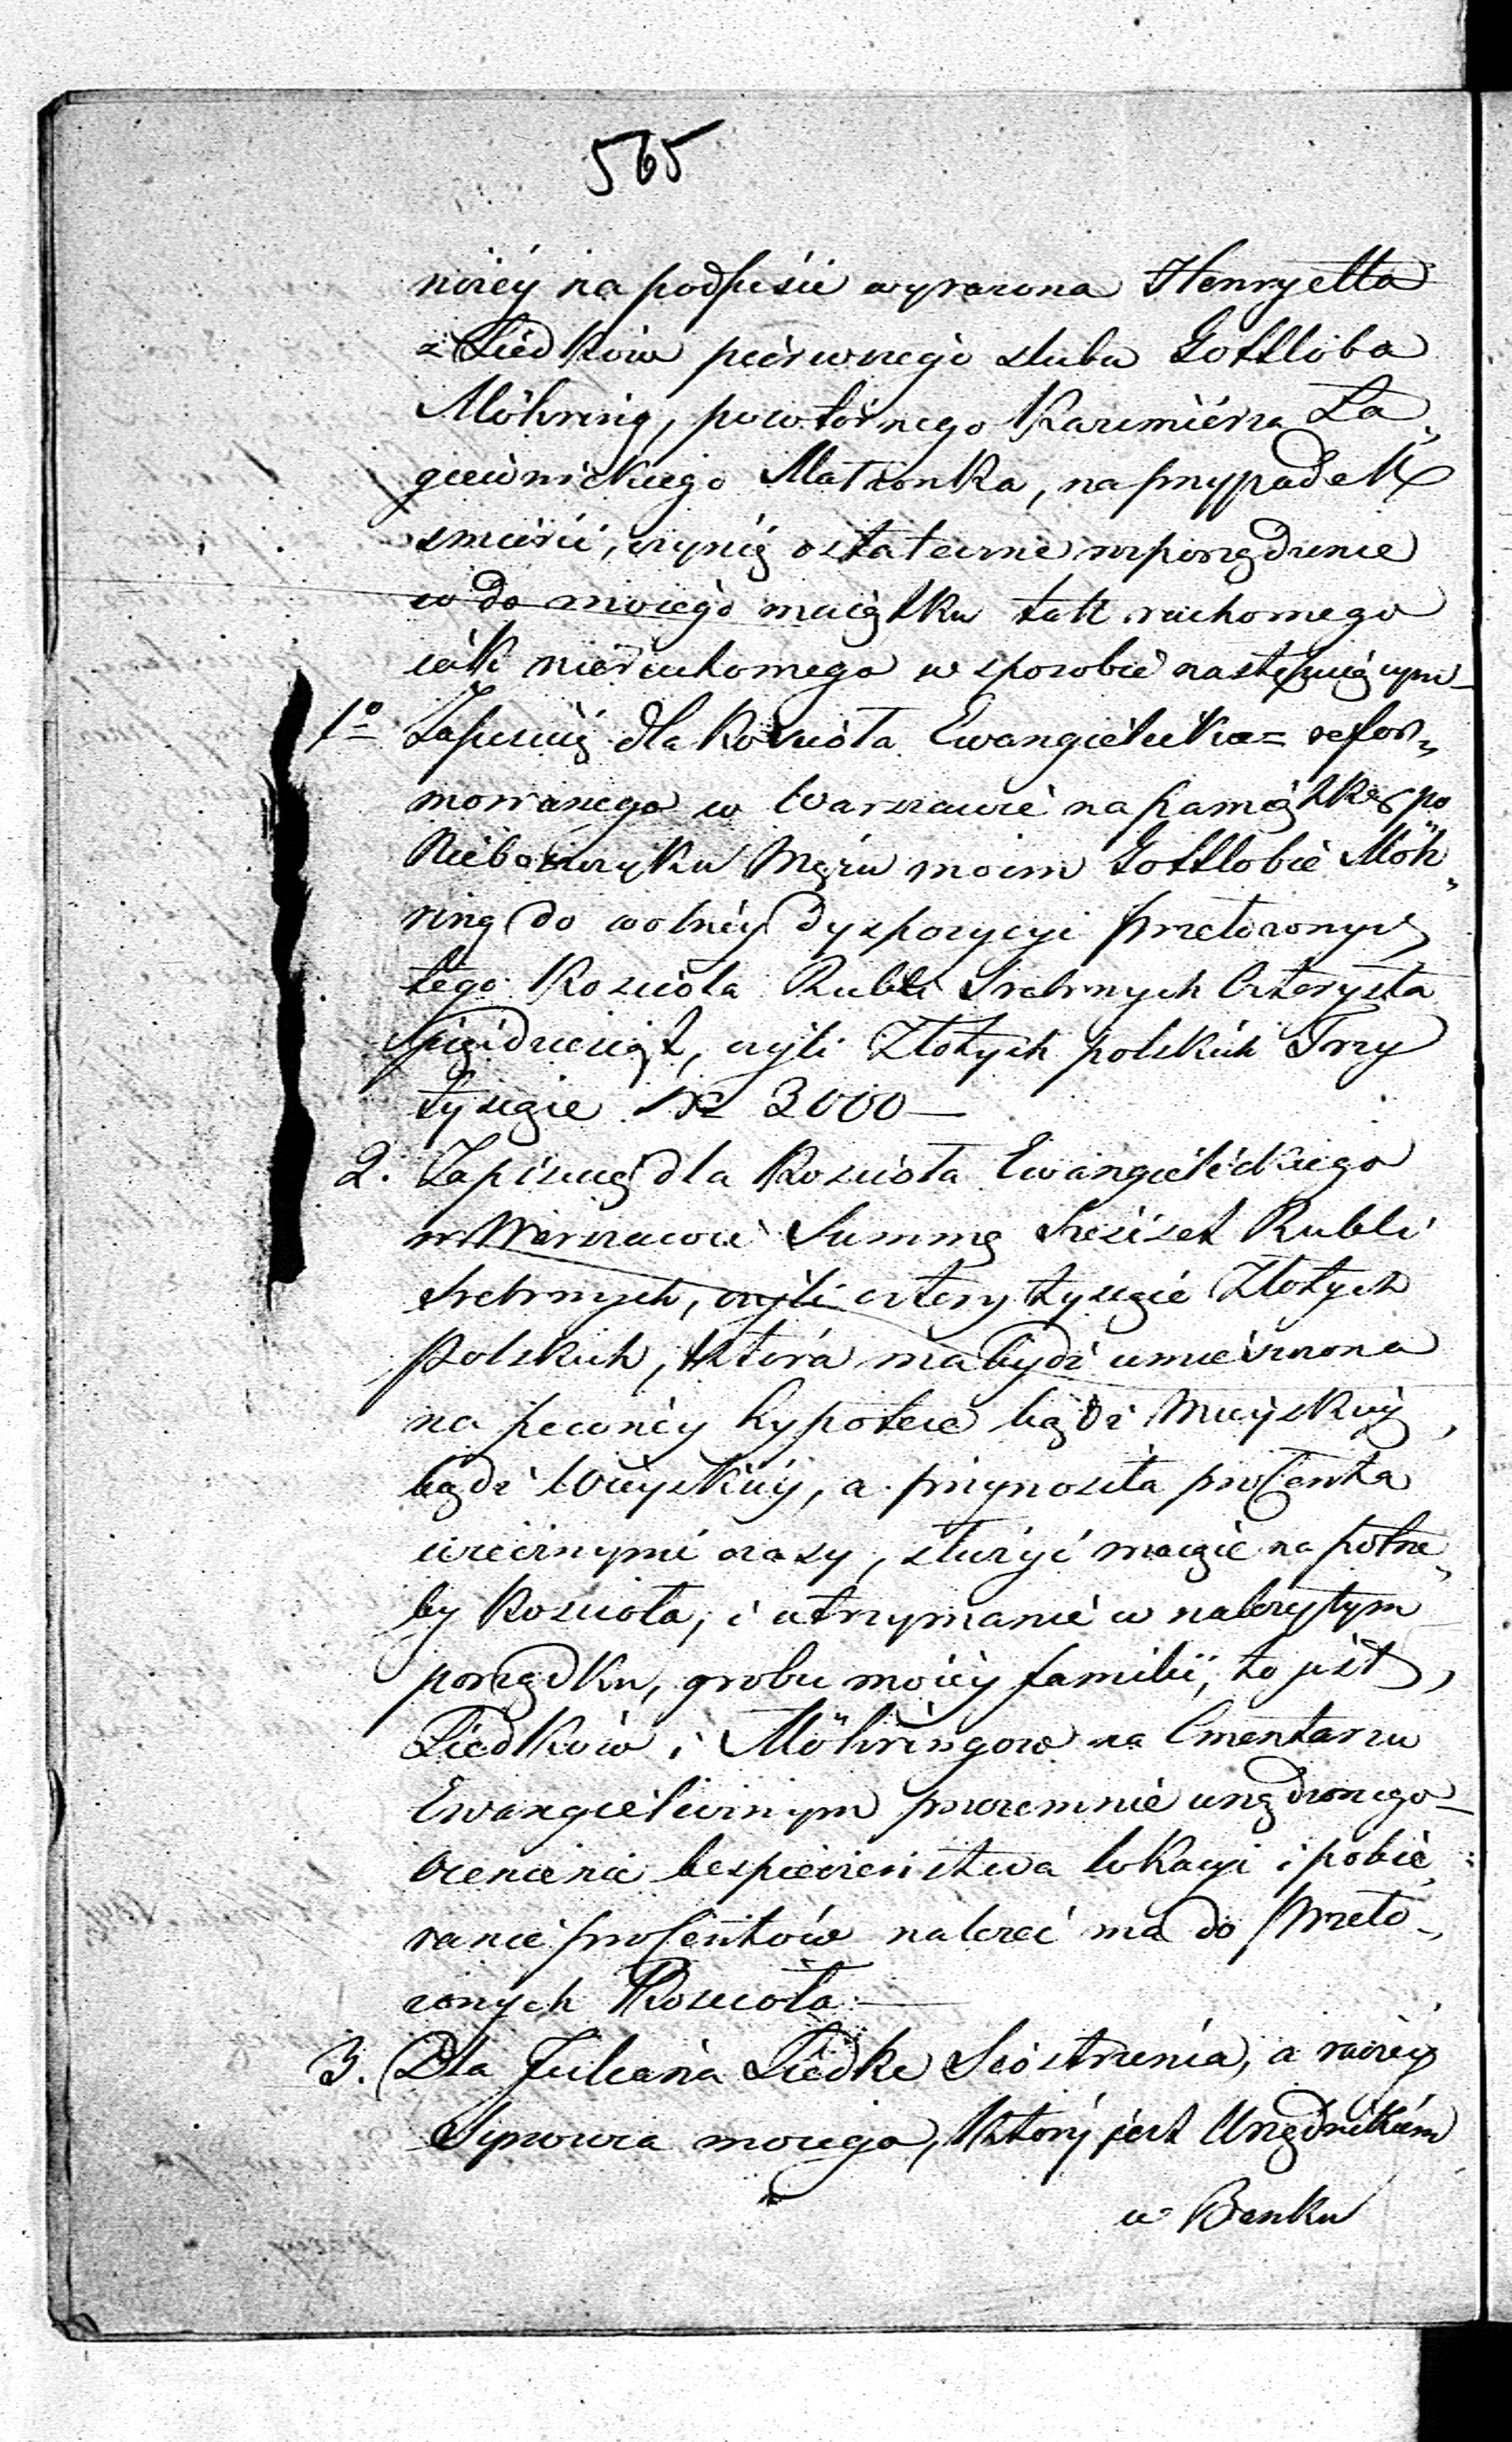 565
niżéy na podpisie wyrażona Henryetta
z Liedków pierwszego ślubu Gottloba
Möhring, powtórnego Kazimiérza Ła„
giewnickiego Małżonka, na przypadek
śmierci, czynię ostateczne rozporządzenie
co do mojego maiątku tak ruchomego
iak nieruchomego w sposobie następuiącym—
1º Zapisuię dla Kościoła Ewangielicko= refor„
mowanego w Warszawie na pamiątkę po
Nieboszczyku Mężu moim Gottlobie Möh„
ring do wolnéy dyspozycyi Przełożonych
tego Kościoła Rubli Srebrnych Czterysta
pięćdziesiąt, czyli Złotych polskich Trzy
tysiące N° 3000—
2. Zapisuię dla Kościoła Ewangielickiego
w Warszawie Summę Sześćset Rubli
Srebrnych, czyli cztery tysiące Złotych
polskich, która ma bydź umieszczona
na pewnéy hypotece bądź Mieyskiéy,
bądź Wieyskiéy, a przynosiła procenta
wiecznymi czasy, służyć maiące na potrze„
by Kościoła, i utrzymanie w należytym
porządku, grobu moiéy familii, to jest,
Liedków i Möhringów na Cmentarzu
Ewangielicznym przezemnie urządzonego—
Ocenienie bespieczeństwa lokacyi i pobie„
ranie procentów należeć ma do Przeło„
żonych Kościoła.—
3. Dla Juliana Liedke Siostrzenia, a raczéy
Synowca moiego, który jest Urzędnikiem
w Banku